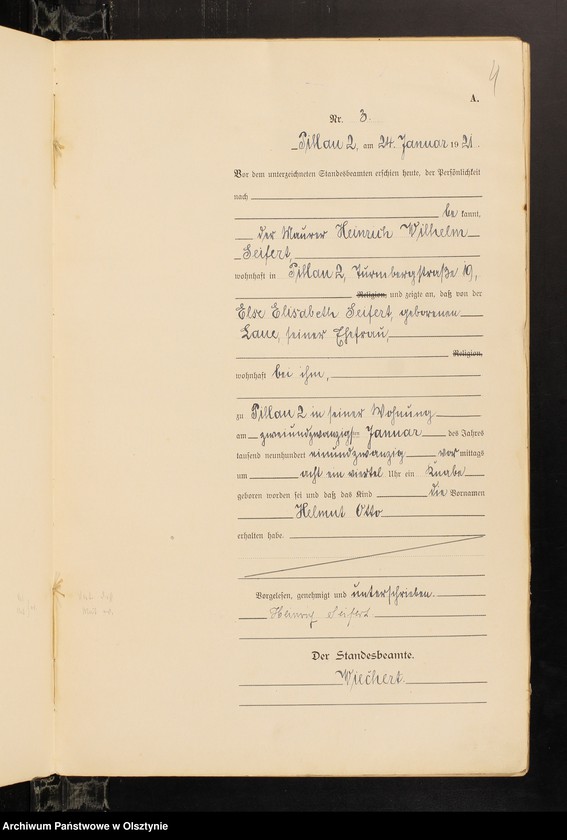 4
A.
Nr. 3.
Pillau 2, am 24. Januar 1921
Vor dem unterzeichneten Standesbeamten erschien heute, der Persönlichkeit
nach
be kannt,
der Maurer Heinrich Wilhelm
Seifert,
wohnhaft in Pillau 2, Turmbergstraße 19,
Religion, und zeigte an, daß von der
Else Elisabeth Seifert, geborenen
Laue, seiner Ehefrau,
Religion,
wohnhaft bei ihm,
zu Pillau 2 in seiner Wohnung
am zweiundzwanzigsten Januar des Jahres
tausend neunhundert einundzwanzig vor mittags
um acht ein viertel Uhr ein Knabe
geboren worden sei und daß das Kind die Vornamen
Helmut Otto
erhalten habe.
Vorgelesen, genehmigt und unterschrieben.
Seifert
Der Standesbeamte.
Wiechert.
Archiwum Państwowe w Olsztynie